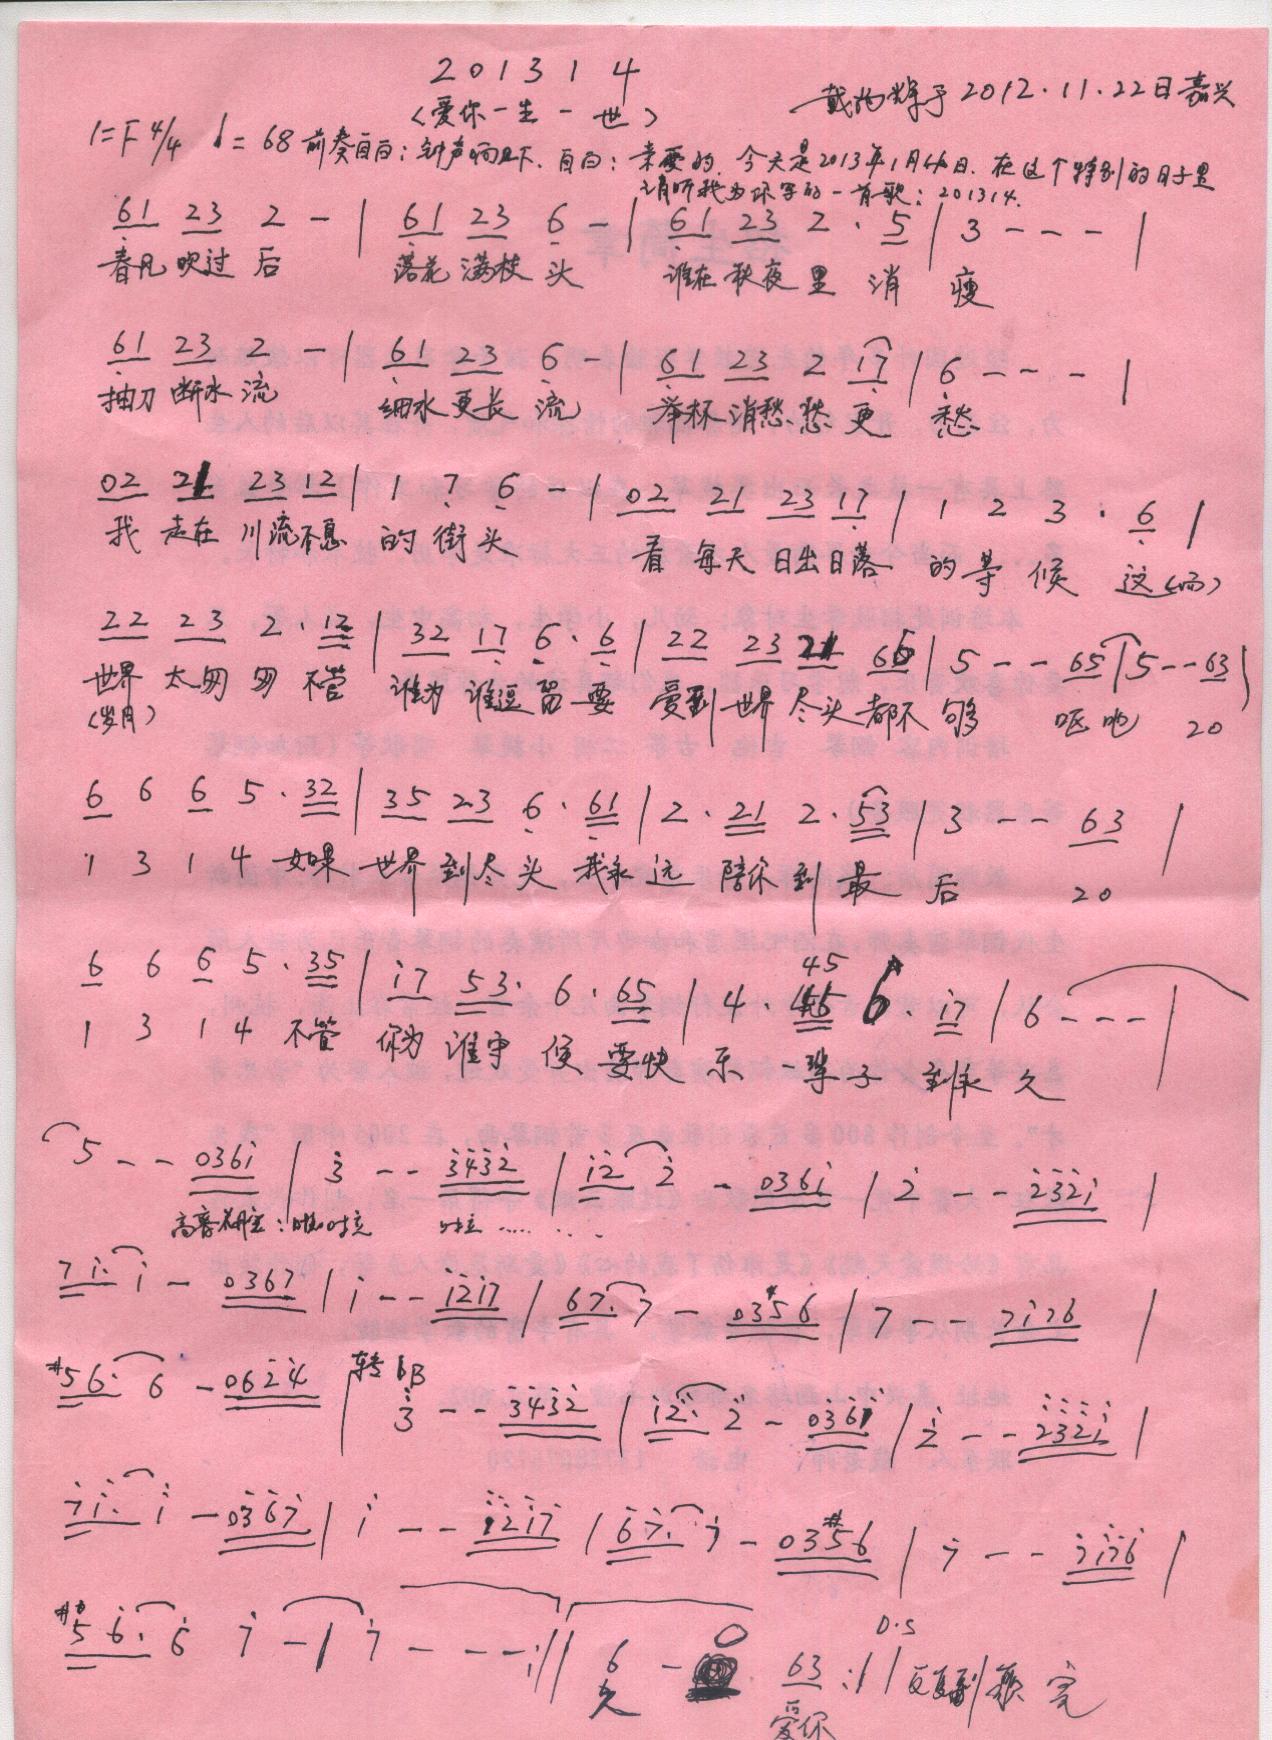 201314
(爱你一生一世)
于2012.11.22日嘉兴
1=F 4/4 ♩=68 前奏自白:钟声响且下.自白:亲爱的.今天是2013年1月4日.在这个特别的日子里
请听我为你写的一首歌:201314.
61 23 2 - | 61 23 6 - | 61 23 2 · 5 | 3 - - - |
春风吹过后 落花满枝头 谁在秋夜里消瘦
61 23 2 - | 61 23 6 - | 61 23 2 17 | 6 - - - |
抽刀断水流 细水更长流 举杯消愁愁更愁
02 21 23 12 | 1 7 6 - | 02 21 23 17 | 1 2 3 · 6 |
我走在川流不息的街头 看每天日出日落的等候 这(而)
22 23 2 · 12 | 32 17 6 · 6 | 22 23 21 66 | 5 - - 65 | 5 - - 63 |
世界太匆匆不管谁为谁逗留要爱到世界尽头都不够 呃吔 20
(岁月)
6 6 6 5 · 32 | 35 23 6 · 61 | 2 · 21 2 · 53 | 3 - - 63 |
1 3 1 4 如果世界到尽头我永远陪你到最后 20
45
6 6 6 5 · 35 | i7 53· 6 · 65 | 4 · 6 · i7 | 6 - - - |
1 3 1 4 不管你为谁守候要快乐一辈子到永久
5 - - 036i | 3 - - 3432 | i2 2 - 036i | 2 - - 232i |
高音
7i· i - 0367 | i - - i2i7 | 67· 7 - 03#56 | 7 - - 7i76 |
#56· 6 - 0624 | 转bB 3 - - 3432 | i2· 2 - 036i | 2 - - 232i |
7i· i - 0367 | i - - i2i7 | 67· 7 - 03#56 | 7 - - 7i76 |
#56· 6 7 - | 7 - - - :|| 6 - 0 63 :|| D.S 反复到完
久 爱你